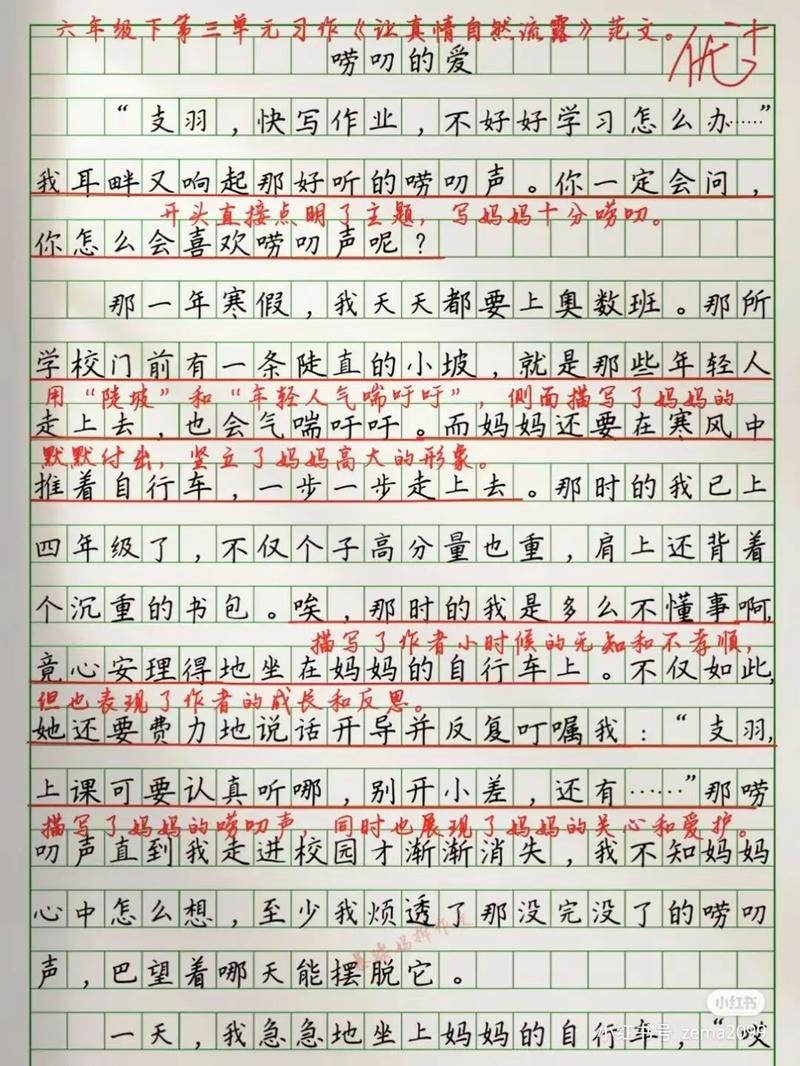 六年级下第三单元习作《让真情自然流露》范文。
优+
唠叨的爱
“支羽，快写作业，不好好学习怎么办……”
我耳畔又响起那好听的唠叨声。你一定会问，
开头直接点明了主题，写妈妈十分唠叨。
你怎么会喜欢唠叨声呢？
那一年寒假，我天天都要上奥数班。那所
学校门前有一条陡直的小坡，就是那些年轻人
用“陡坡”和“年轻人气喘吁吁”，侧面描写了妈妈的
走上去，也会气喘吁吁。而妈妈还要在寒风中
默默付出，坚立了妈妈高大的形象。
推着自行车，一步一步走上去。那时的我已上
四年级了，不仅个子高分量也重，肩上还背着
个沉重的书包。唉，那时的我是多么不懂事啊，
描写了作者小时候的无知和不孝顺，
竟心安理得地坐在妈妈的自行车上。不仅如此，
但也表现了作者的成长和反思。
她还要费力地说话开导并反复叮嘱我：“支羽，
上课可要认真听哪，别开小差，还有……”那唠
描写了妈妈的唠叨声，同时也展现了妈妈的关心和爱护。
叨声直到我走进校园才渐渐消失，我不知妈妈
心中怎么想，至少我烦透了那没完没了的唠叨
声，巴望着哪天能摆脱它。
小红书
一天，我急急地坐上妈妈的自行车，“哎
小红书号 zema2099